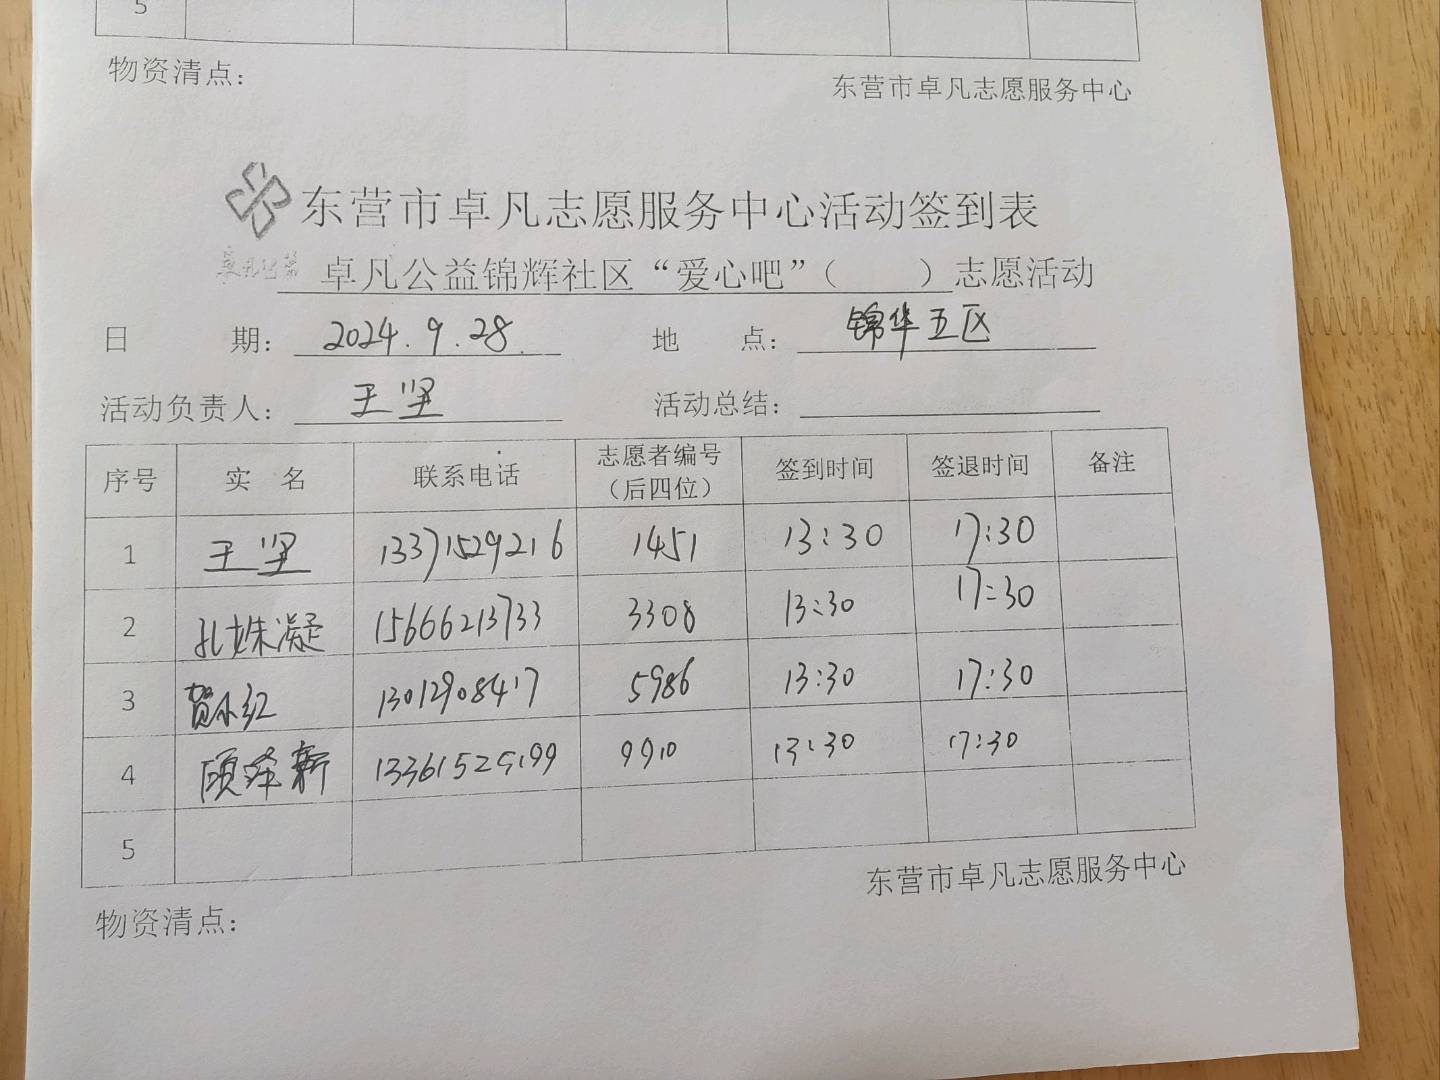 5
物资清点：
东营市卓凡志愿服务中心
东营市卓凡志愿服务中心活动签到表
卓凡公益锦辉社区“爱心吧”（ ）志愿活动
日 期： 2024.9.28. 地 点： 锦华五区
活动负责人： 王坚 活动总结：
序号 实 名 联系电话 志愿者编号（后四位） 签到时间 签退时间 备注
1 王坚 13371529216 1451 13:30 17:30
2 孔姝凝 15666213733 3308 13:30 17:30
3 贺小红 13012908417 5986 13:30 17:30
4 顾泽新 13361525199 9910 13:30 17:30
5
东营市卓凡志愿服务中心
物资清点：